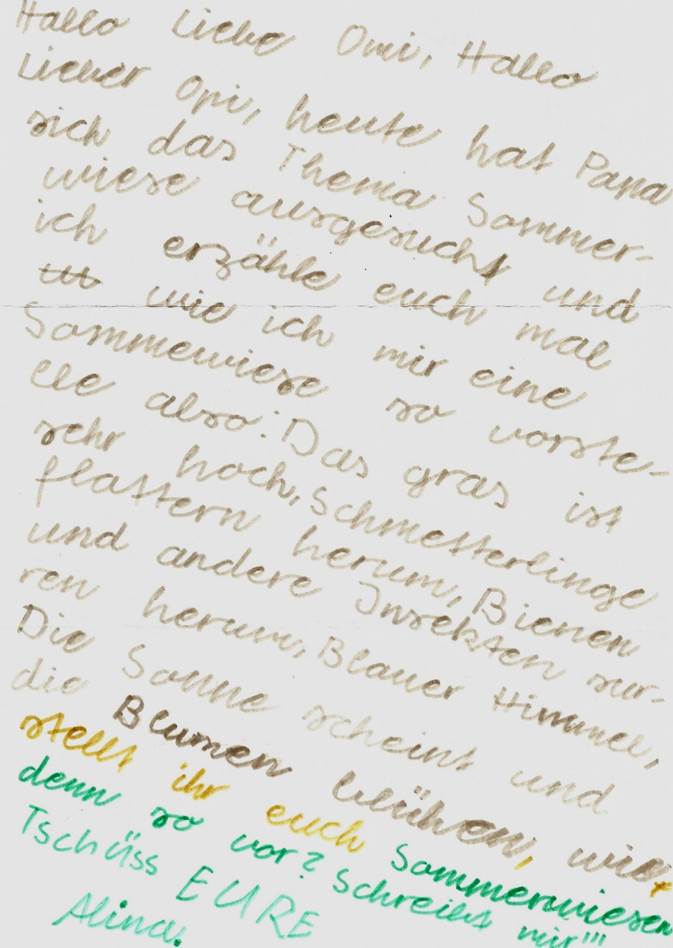 Hallo Liebe Omi, Hallo
Lieber Opi, heute hat Papa
sich das Thema Sommer-
wiese ausgesucht und
ich erzähle euch mal
wie ich mir eine
Sommewiese so vorste-
lle also: Das gras ist
sehr hoch, Schmetterlinge
flattern herum, Bienen
und andere Insekten sur-
ren herum, Blauer Himmel,
Die Sonne scheint und
die Blumen blühen, wie
stellt ihr euch Sommerwiesen
denn so vor? Schreibt mir'''
Tschüss EURE
Alina!